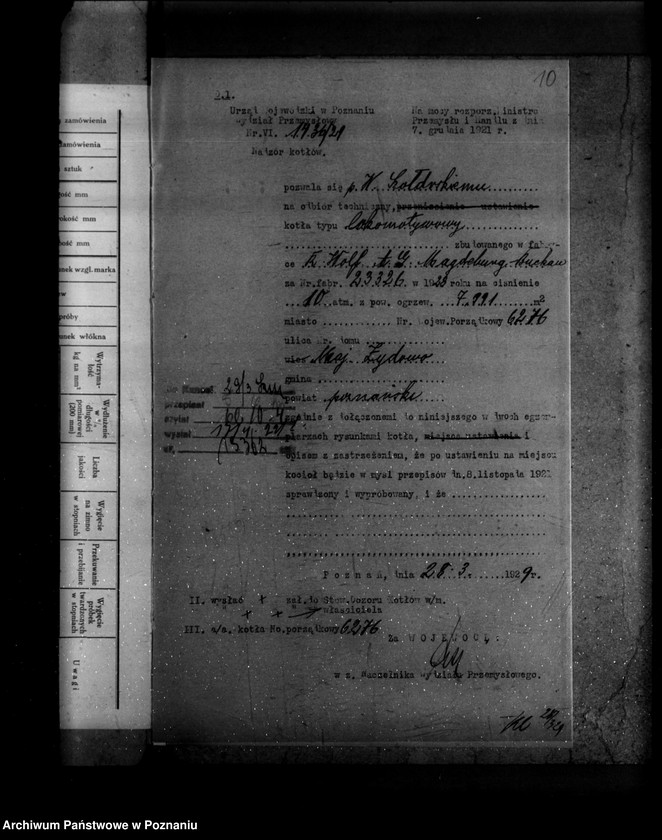 10
Urząd Wojewódzki w Poznaniu
Wydział Przemysłowy
Nr.VI. 1936/29
Nadzór kotłów.
Na mocy rozporz. Ministra
Przemysłu i Handlu z dnia
7. grudnia 1921 r.
pozwala się p. W.
na odbiór techniczny, przeniesienie - ustawienie
kotła typu lokomotywowy
zbudowanego w fabry-
ce R. Wolf A. G. Magdeburg Buckau
za Nr.fabr. 23326 w roku na ciśnienie
10 atm. z pow. ogrzew. 7.991 m2
miasto Nr. Wojew.Porządkowy 6276
ulica Nr. domu
wieś Maj. Żydowo
gmina
powiat poznański
zgodnie z dołączonemi do niniejszego w dwóch egzem-
plarzach rysunkami kotła, miejsca ustawienia i
opisem z zastrzeżeniem, że po ustawieniu na miejscu
kocioł będzie w myśl przepisów dn.8.listopada 1921
sprawdzony i wypróbowany, i że
Poznań, dnia 28. 3. 1929 r.
II. wysłać + zał. do Stow.Dozoru Kotłów w/m.
+ + " właściciela
III. a/a. kotła No.porządkowy 6276
Za WOJEWODĘ:
w z. Naczelnika Wydziału Przemysłowego.
29/3
przepisał
czytał
wysłał
zamówienia
zamówienia
sztuk
mm
mm
mm
wzgl. marka
próby
włókna
Wytrzyma-
łość
kg na mm²
Wydłużenie
w %
długości
pomiarowej
(200 mm)
Liczba
jakości
Wygięcie
na zimno
w stopniach
Przekuwanie
i przebijanie
Wygięcie
próbek
twardzonych
w stopniach
Uwagi
Archiwum Państwowe w Poznaniu